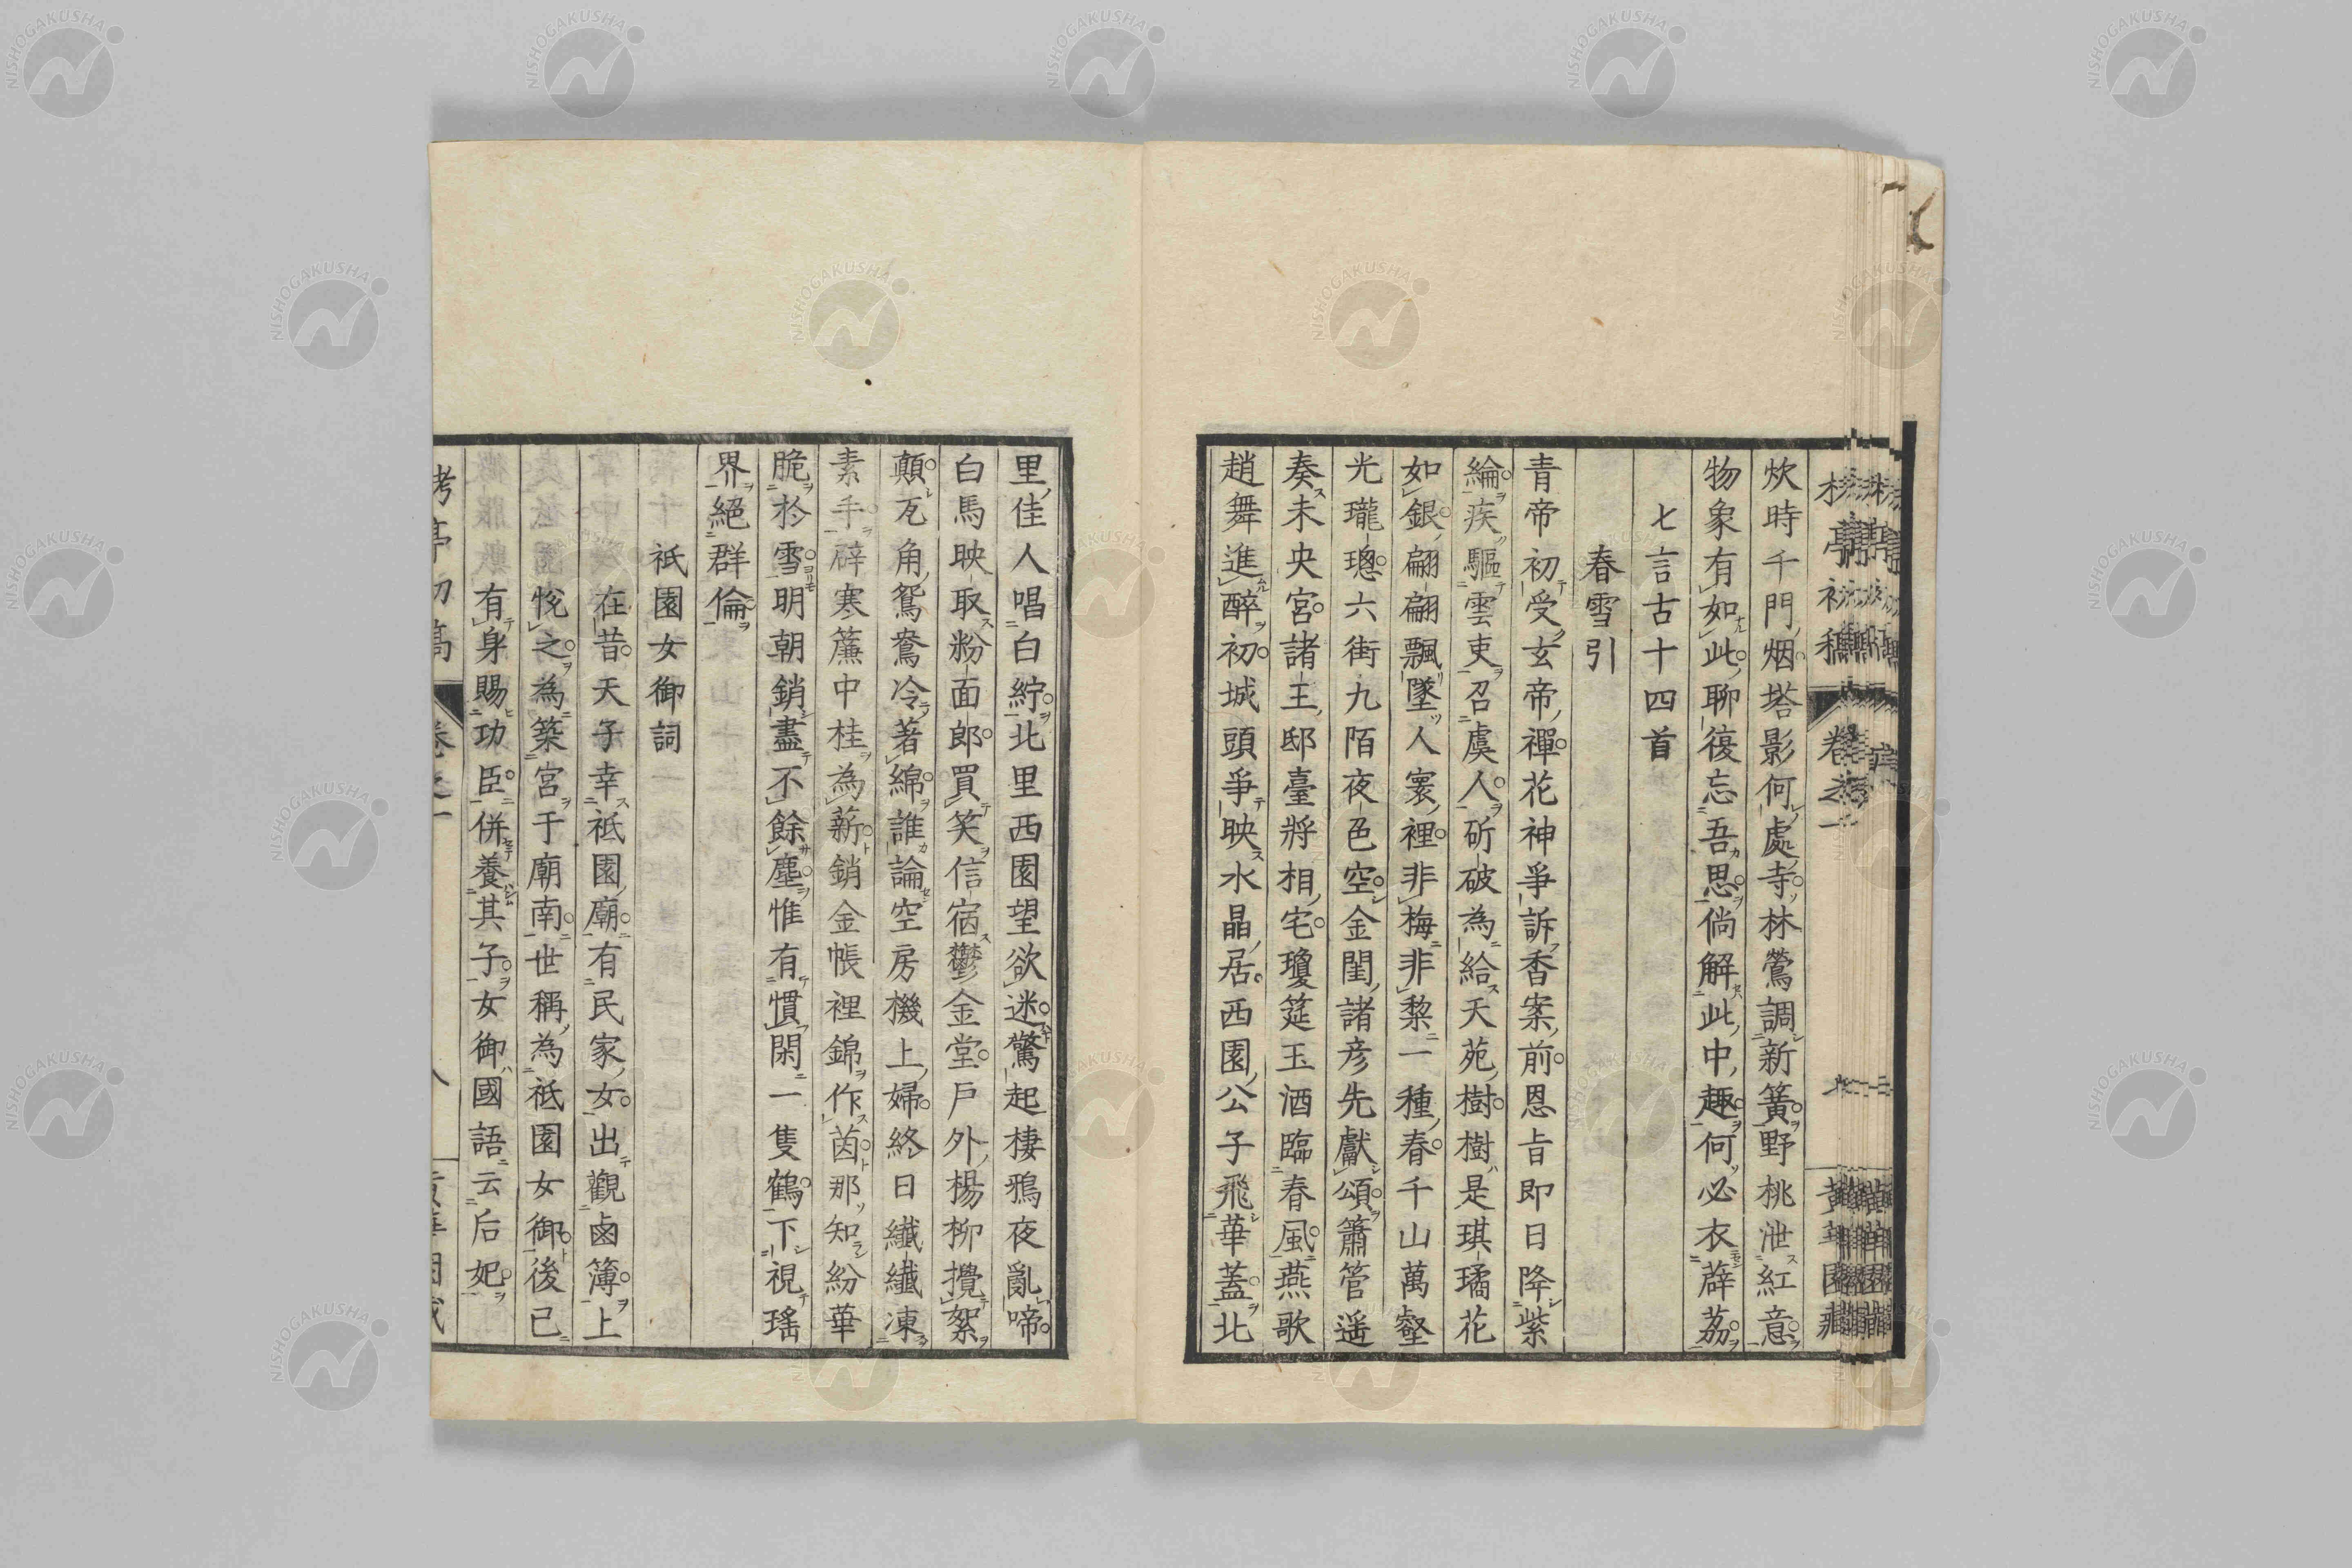 炊時千門烟塔影何處寺林鶯調新簧野桃泄紅意
物象有如此聊復忘吾思倘解此中趣何必衣薜荔
七言古十四首
春雪引
青帝初受玄帝禪花神爭訴香案前恩旨即日降紫
綸疾驅雲吏召虞人斫破為給天苑樹樹是琪璚花
如銀翩翩飄墜人寰裡非梅非梨一種春千山萬壑
光瓏璁六街九陌夜色空金閨諸彦先獻頌簫管遥
奏未央宮諸王邸臺將相宅瓊筵玉酒臨春風燕歌
趙舞進醉初城頭爭映水晶居西園公子飛華蓋北
里佳人唱白紵北里西園望欲迷驚起棲鴉夜亂啼
白馬映取粉面郎買笑信宿鬱金堂戶外楊柳攪絮
顛瓦角鴛鴦冷著綿誰論空房機上婦終日纖纖凍
素手辟寒簾中桂為薪銷金帳裡錦作茵那知紛華
脆於雪明朝銷盡不餘塵惟有慣閑一隻鶴下視瑤
界絕群倫
祇園女御詞
在昔天子幸祇園廟有民家女出觀鹵簿上
悅之為築宮于廟南世稱為祇園女御後已
有身賜功臣併養其子女御國語云后妃
卷之一
NISHOGAKUSHA